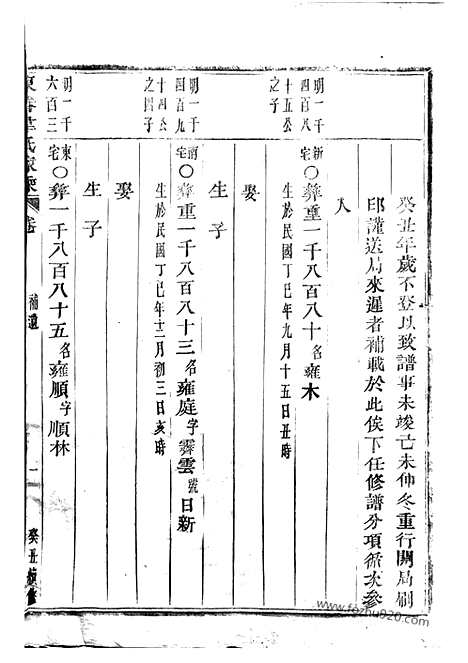 癸丑年歲不登以致譜事未竣亡未仲冬重行開局刷
印謹送局來遲者補載於此俟下任修譜分項循次參
入
明一千四百八十五公之子
新宅○彜重一千八百八十名雍木
生於民國丁巳年九月十五日丑時
娶
生子
明一千四百九十四公之四子
前宅○彜重一千八百八十三名雍庭字霽雲號日新
生於民國丁巳年十二月初三日亥時
娶
生子
明一千六百三
東宅○彜一千八百八十五名雍順字順林
補遺
一
癸丑